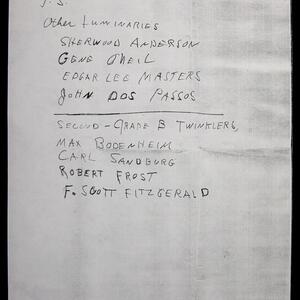 P.S.
Other Luminaries
SHERWOOD ANDERSON
GENE O'NEIL
EDGAR LEE MASTERS
JOHN DOS PASSOS
SECOND-GRADE B TWINKLERS,
MAX BODENHEIM
CARL SANDBURG
ROBERT FROST
F. SCOTT FITZGERALD